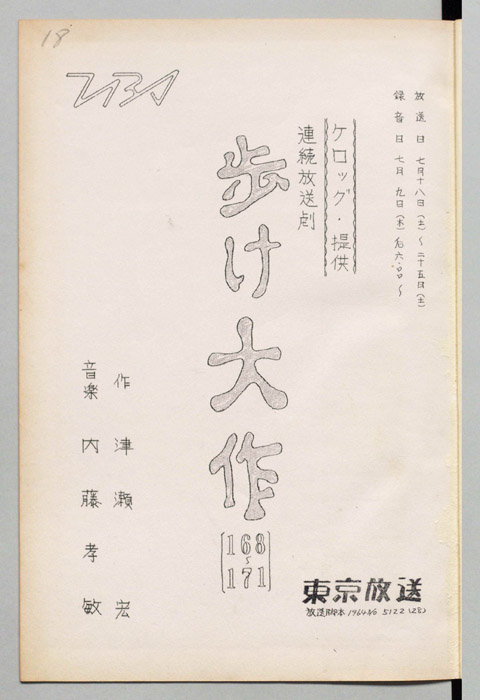 18
TBS
放送日 七月十八日(土)〜二十五日(土)
録音日 七月九日(木)
ケロッグ・提供
連続放送劇
歩け大作
[168〜171]
作 津瀬宏
音楽 内藤孝敏
東京放送
放送脚本